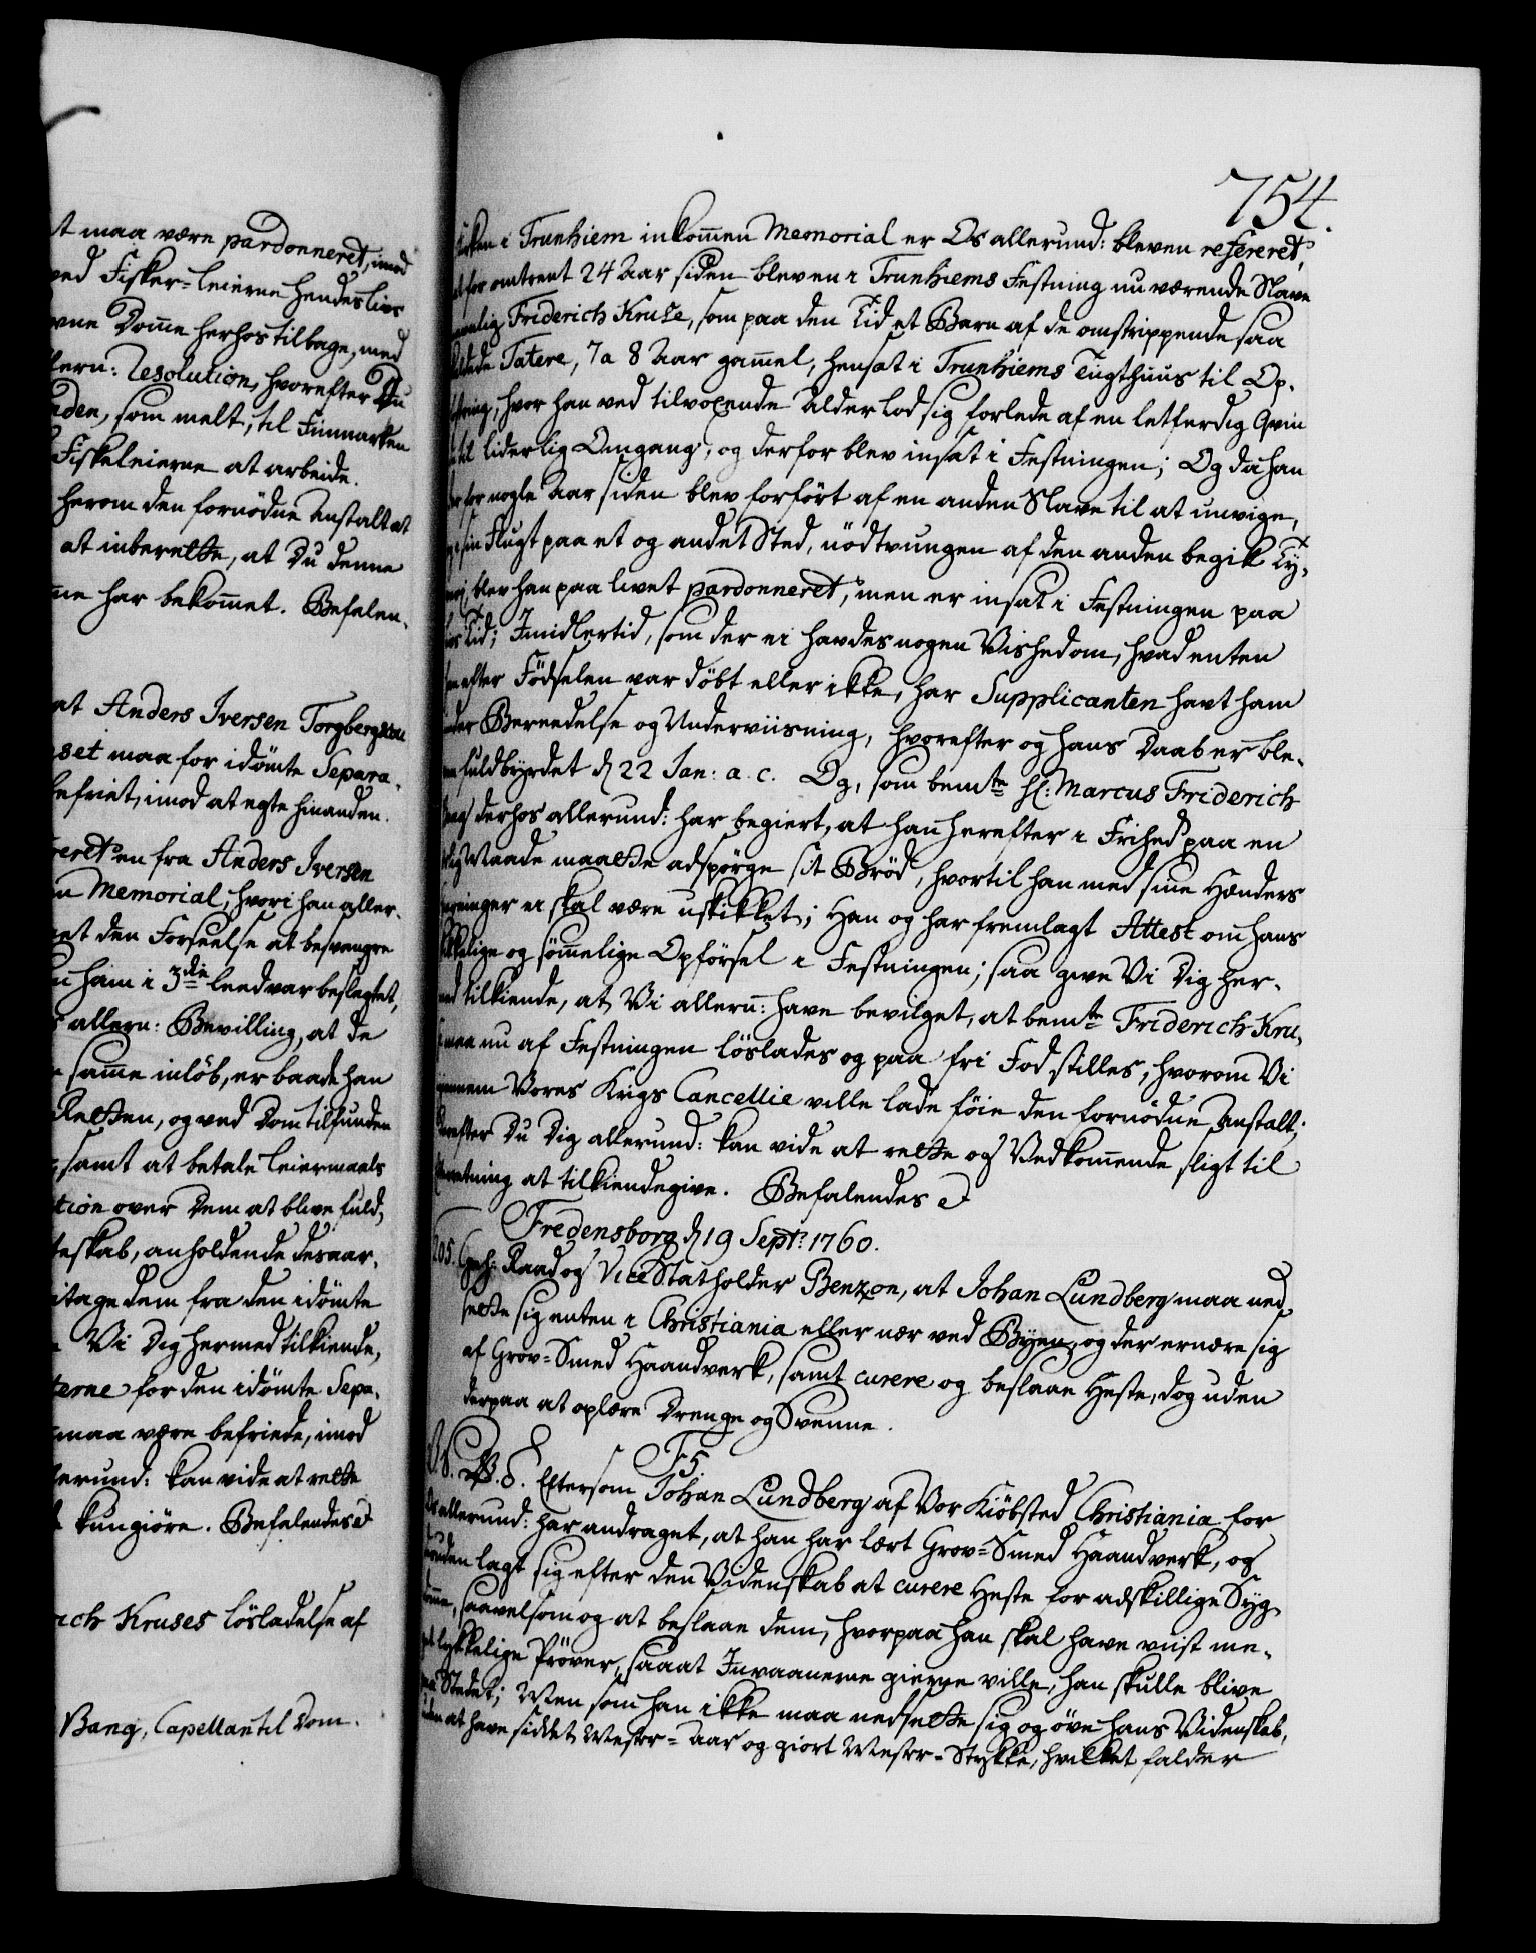 t maa være pardonneret, imod
ved Fisker-leierne hendes livs
Domme herhos tilbage, med
Resolution, hvorefter Du
som melt, til Finmarken
Fiskeleierne at arbeide.
herom den fornødne Anstalt at
at inberette, at Du denne
har bekommet. Befalen-
at Anders Iversen Torgbergsen
maa for idømte Separa-
befriet, imod at egte hinanden.
en fra Anders Iversen
Memorial, hvori han aller-
den Forseelse at besvangre
ham i 3die leed var beslegtet,
allern: Bevilling, at de
samme inløb, er baade han
Retten, og ved Dom tilfunden
samt at betale leiermaals
over Dem at blive fuld-
anholdende desaar-
dem fra den idømte
Vi Dig hermed tilkiende,
for den idømte Sepa-
maa være befriede, imod
kan vide at rette
kundgiøre. Befalendes
Kruses løsladelse af
Bang, Capellan til Dom-
754.
i Trunhiem inkommen Memorial er Os allerund: bleven refereret,
for omtrent 24 Aar siden bleven i Trunhiems Festning nu værende Slave
Friderich Kruse, som paa den Tid et Barn af de omstrippende saa
Tatere, 7 a 8 Aar gammel, hensat i Trunhiems Tugthuus til Op-
hvor han ved tilvoxende Alder lod sig forlede af en letferdig Qvin
til liderlig Omgang, og derfor blev insat i Festningen; Og da han
for nogle Aar siden blev forført af en anden Slave til at unvige,
sin Flugt paa et og andet Sted, nødtvungen af den anden begik Ty-
blev han paa livet pardonneret, men er insat i Festningen paa
Tid; Imidlertid, som der ei havdes nogen Vished om, hvad enten
efter Fødselen var døbt eller ikke, har Supplicanten havt ham
under Bereedelse og Underviisning, hvorefter og hans Daab er ble-
fuldbyrdet d 22 Jan: a. c. Og, som bemte Hr: Marcus Friderich
derhos allerund: har begiert, at han herefter i Frihed paa en
Maade maatte adspørge sit Brød, hvortil han med sine Hænders
ei skal være uskikket; Han og har fremlagt Attest om hans
og sømmelige Opførsel i Festningen; saa give Vi Dig her-
med tilkiende, at Vi allern: have bevilget, at bemte Friderich Kru-
maa nu af Festningen løslades og paa fri Fod stilles, hvorom Vi
giennem Vores Krigs Cancellie ville lade føie den fornødne Anstalt;
Derefter Du Dig allerund: kan vide at rette og Vedkommende sligt til
Efterretning at tilkiendegive. Befalendes
Fredensborg d 19 Sept: 1760.
205. Geh: Raad og Vice Statholder Benzon, at Johan Lundberg maa ned
sette sig enten i Christiania eller nær ved Byen, og der ernære sig
af Grov-Smed Haandverk, samt curere og beslaae Heste, dog uden
derpaa at oplære Drenge og Svenne.
F5.
V. S. G. V. Eftersom Johan Lundberg af Vor Kiøbsted Christiania for
Os allerund: har andraget, at han har lært Grov-Smed Haandverk, og
lagt sig efter den Videnskab at curere Heste for adskillige Syg-
saavelsom og at beslaae dem, hvorpaa han skal have viist me-
get lykkelige Prøver, saa at Invaanerne gierne ville, han skulle blive
paa Stedet; Men som han ikke maa nedsette sig og øve hans Videnskab,
uden at have siddet Mester-Aar og giort Mester-Stykke, hvilket falder